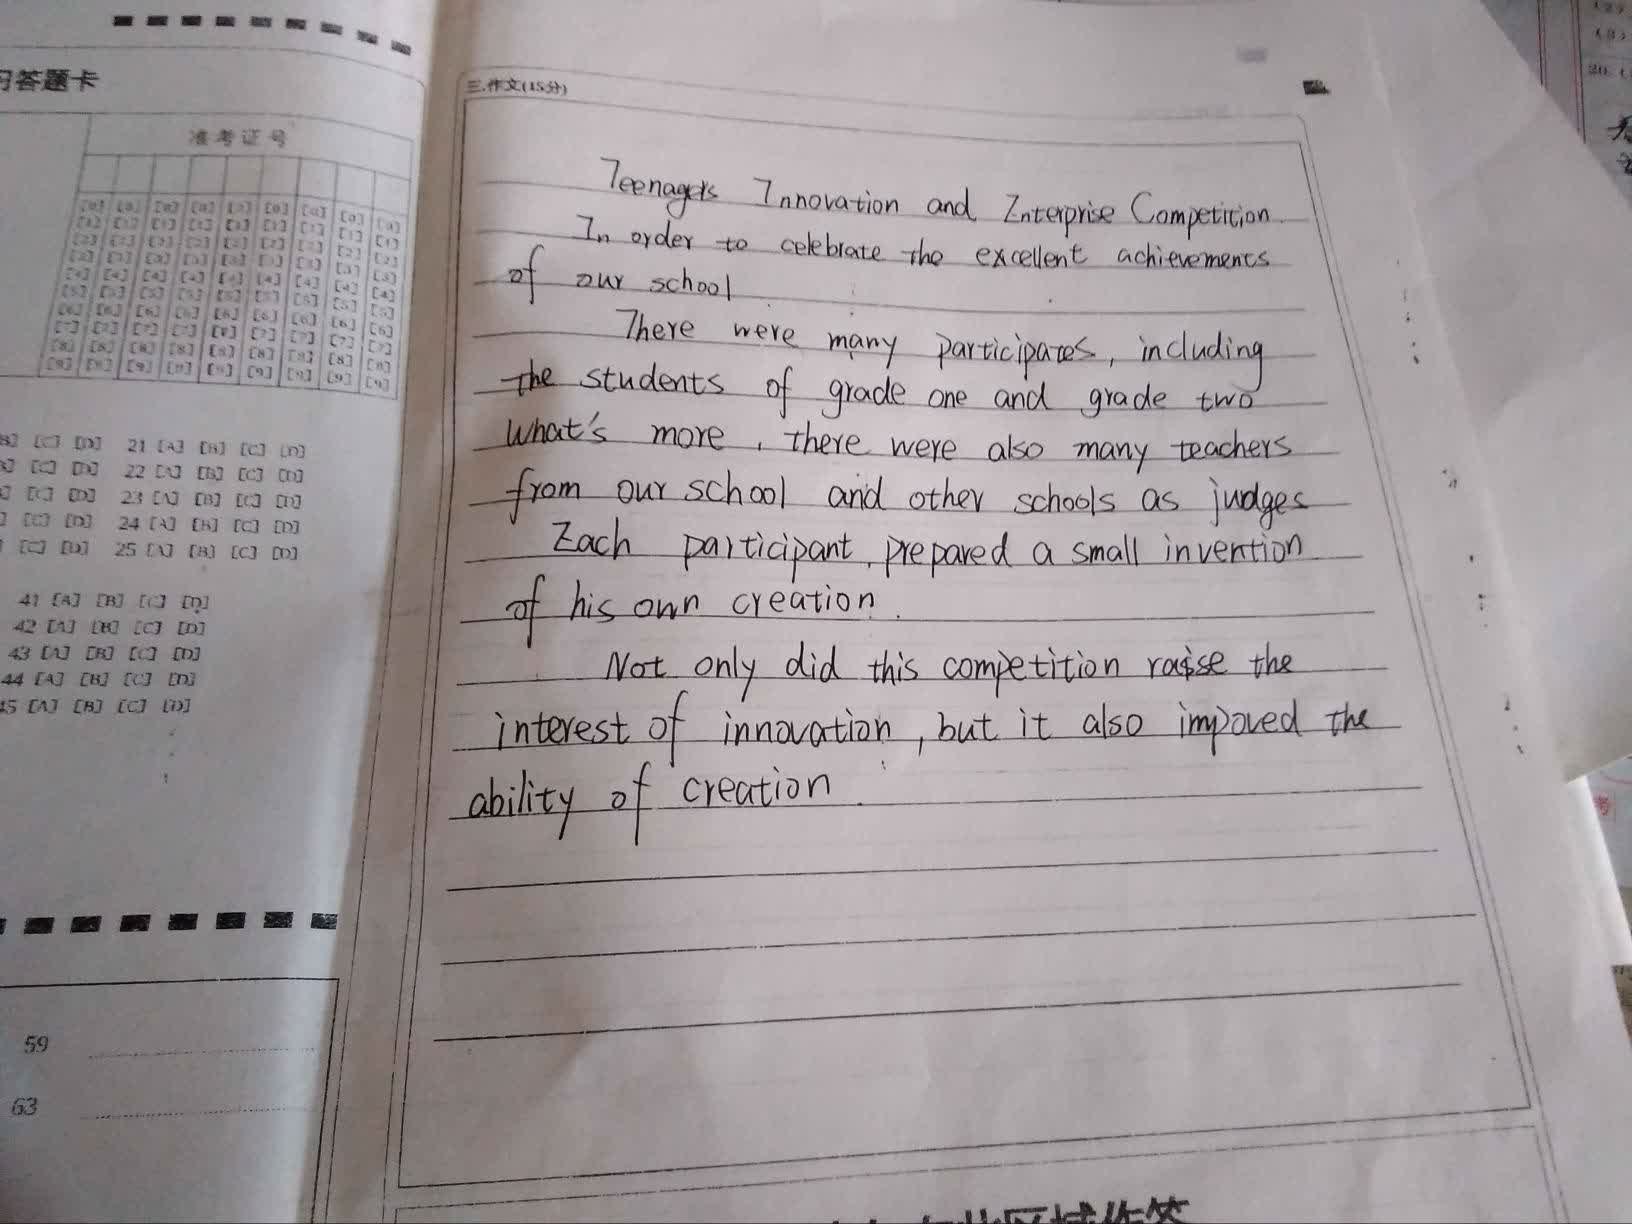 答题卡
准考证号
21 [A] [B] [C] [D]
22 [A] [B] [C] [D]
23 [A] [B] [C] [D]
24 [A] [B] [C] [D]
25 [A] [B] [C] [D]
41 [A] [B] [C] [D]
42 [A] [B] [C] [D]
43 [A] [B] [C] [D]
44 [A] [B] [C] [D]
45 [A] [B] [C] [D]
59
63
三.作文(15分)
Teenagers Innovation and Enterprise Competition
In order to celebrate the excellent achievements
of our school
There were many participates, including
the students of grade one and grade two
What's more, there were also many teachers
from our school and other schools as judges
Each participant prepared a small invention
of his own creation.
Not only did this competition raise the
interest of innovation, but it also impoved the
ability of creation.
区域作答